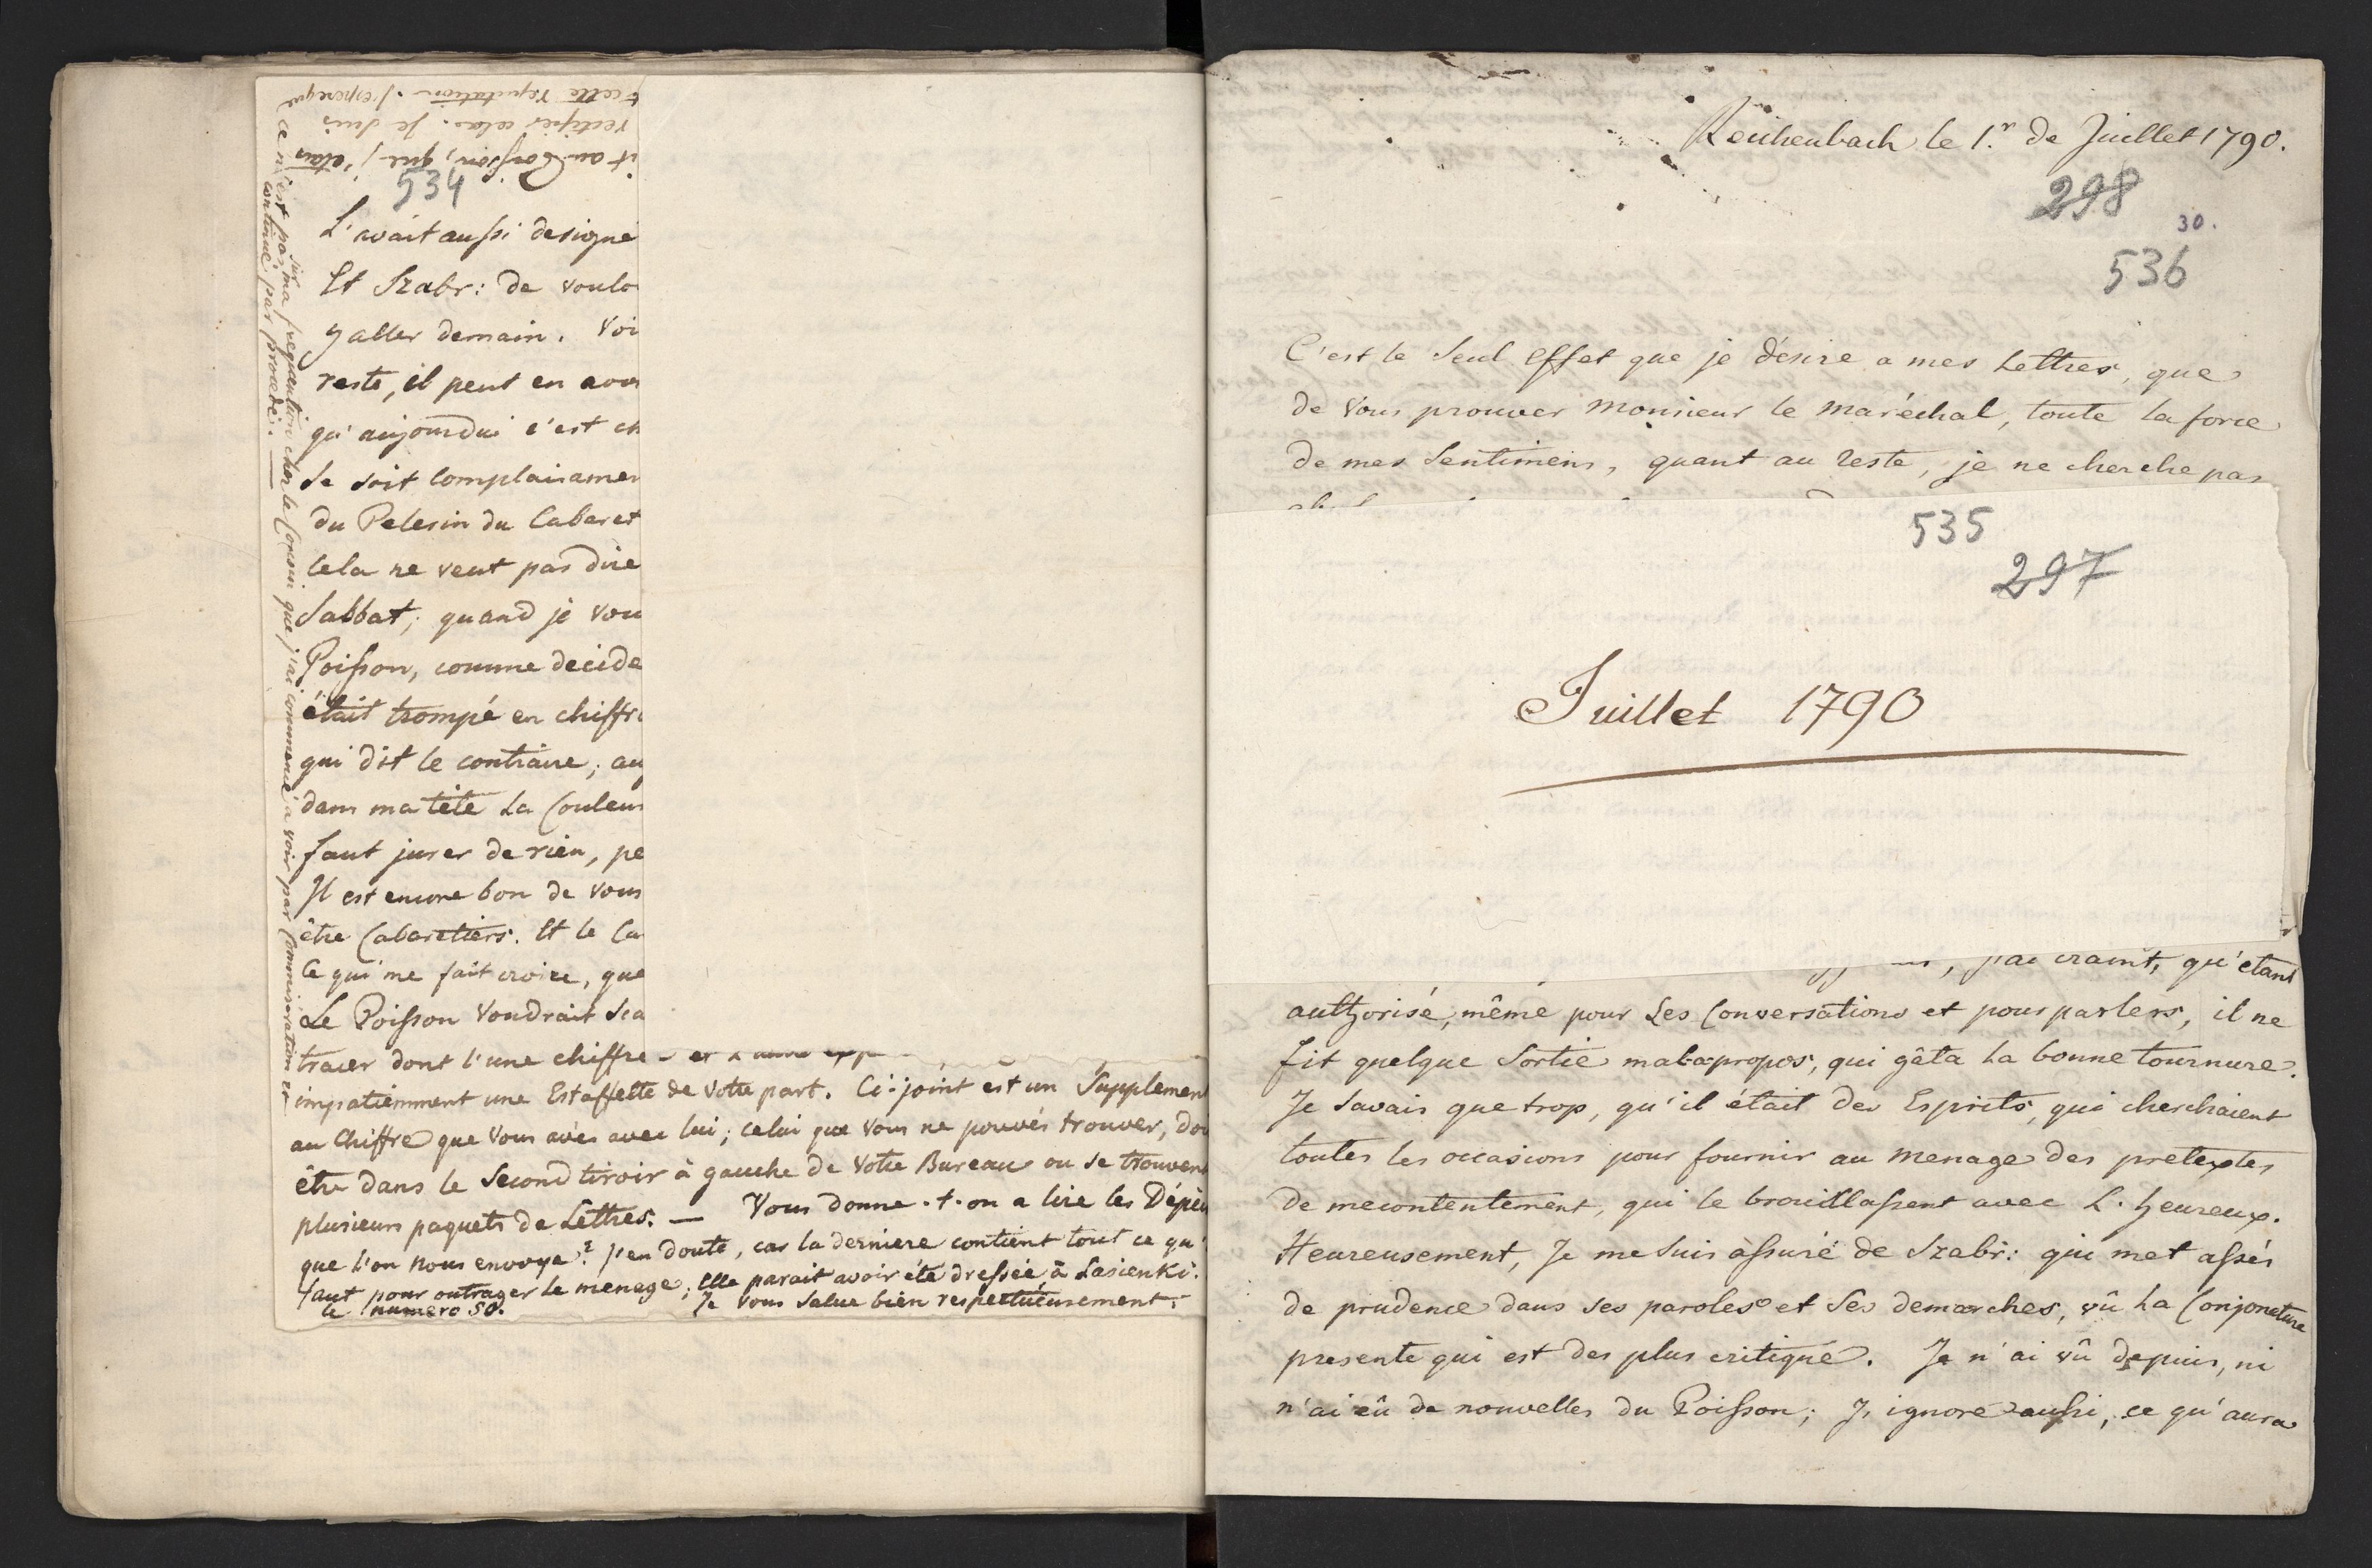 it au Cousin, que j'étais
rectifier cela. Je suis
cette reputation. J'espere que
534
L'avait aussi designé
Et Szabr: de voulo
y aller demain. Voi
reste, il peut en avoi
qu'aujourdui c'est
Se soit complaisamen
du Pelerin du Cabaret
Cela ne veut pas dire
Sabbat; quand je vou
Poisson, comme decide
était trompé en chiffr
qui dit le contraire; au
dans ma tête La Couleur
faut jurer de rien, pe
Il est encore bon de vous
être Cabaretiers. Et le Ca
Ce qui me fait croire, que
Le Poisson voudrait Sca
tracer dont l'une chiffre
impatiemment une Estaffette de votre part. Ci-joint est un Supplement
au Chiffre que Vous avés avec lui; celui que vous ne pouvés trouver, do
être dans le Second tiroir à gauche de Votre Bureau ou se trouvent
plusieurs paquets de Lettres. — Vous donne-t-on a lire les Dépe
que l'on nous envoye? j'en doute, car la derniere contient tout ce qu'
faut pour outrager le menage; elle parait avoir été dressée à Lasienki.
le numero 50. Je vous salue bien respectueusement.
ce n'est pas sur ma frequention chez le Cousin que j'ai commencé a voir par Commiseration et
continué par procedé. —
Reichenbach le 1.r de Juillet 1790.
298
30.
536
C'est le Seul effet que je désire a mes Lettres, que
de Vous prouver Monsieur le Maréchal, toute la force
de mes Sentimens, quant au reste, je ne cherche pas
535
297
Juillet 1790
craint, qu'étant
authorisé, même pour Les Conversations et pourparlers, il ne
fit quelque Sortie mal-apropos, qui gâta La bonne tournure.
Je Savais que trop, qu'il était des Esprits, qui cherchaient
toutes les occasions pour fournir au Menage des pretextes
de mecontentement, qui le brouillassent avec L'heureux.
Heureusement, Je me suis assuré de Szabr: qui met assés
de prudence dans ses paroles et Ses demarches, vû La Conjoncture
presente qui est des plus critique. Je n'ai vû depuis, ni
n'ai eû de nouvelles du Poisson; J'ignore aussi, ce qu'aura